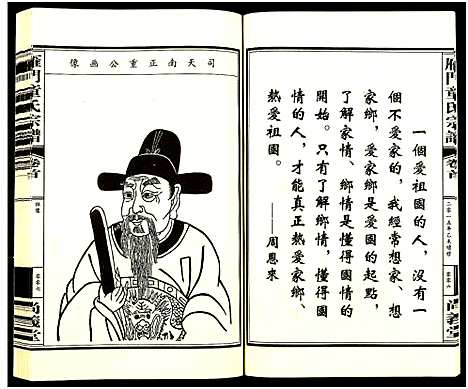 雁門童氏宗譜
卷首
二零一五年乙未續修
尚義堂
一個愛祖國的人，沒有一
個不愛家的，我經常想家、想
家鄉，愛家鄉是愛國的起點，
了解家情、鄉情是懂得國情的
開始。只有了解鄉情，懂得國
情的人，才能真正熱愛家鄉、
熱愛祖國。
——周恩來
司天南正重公畫像
雁門童氏宗譜
卷首
尚義堂